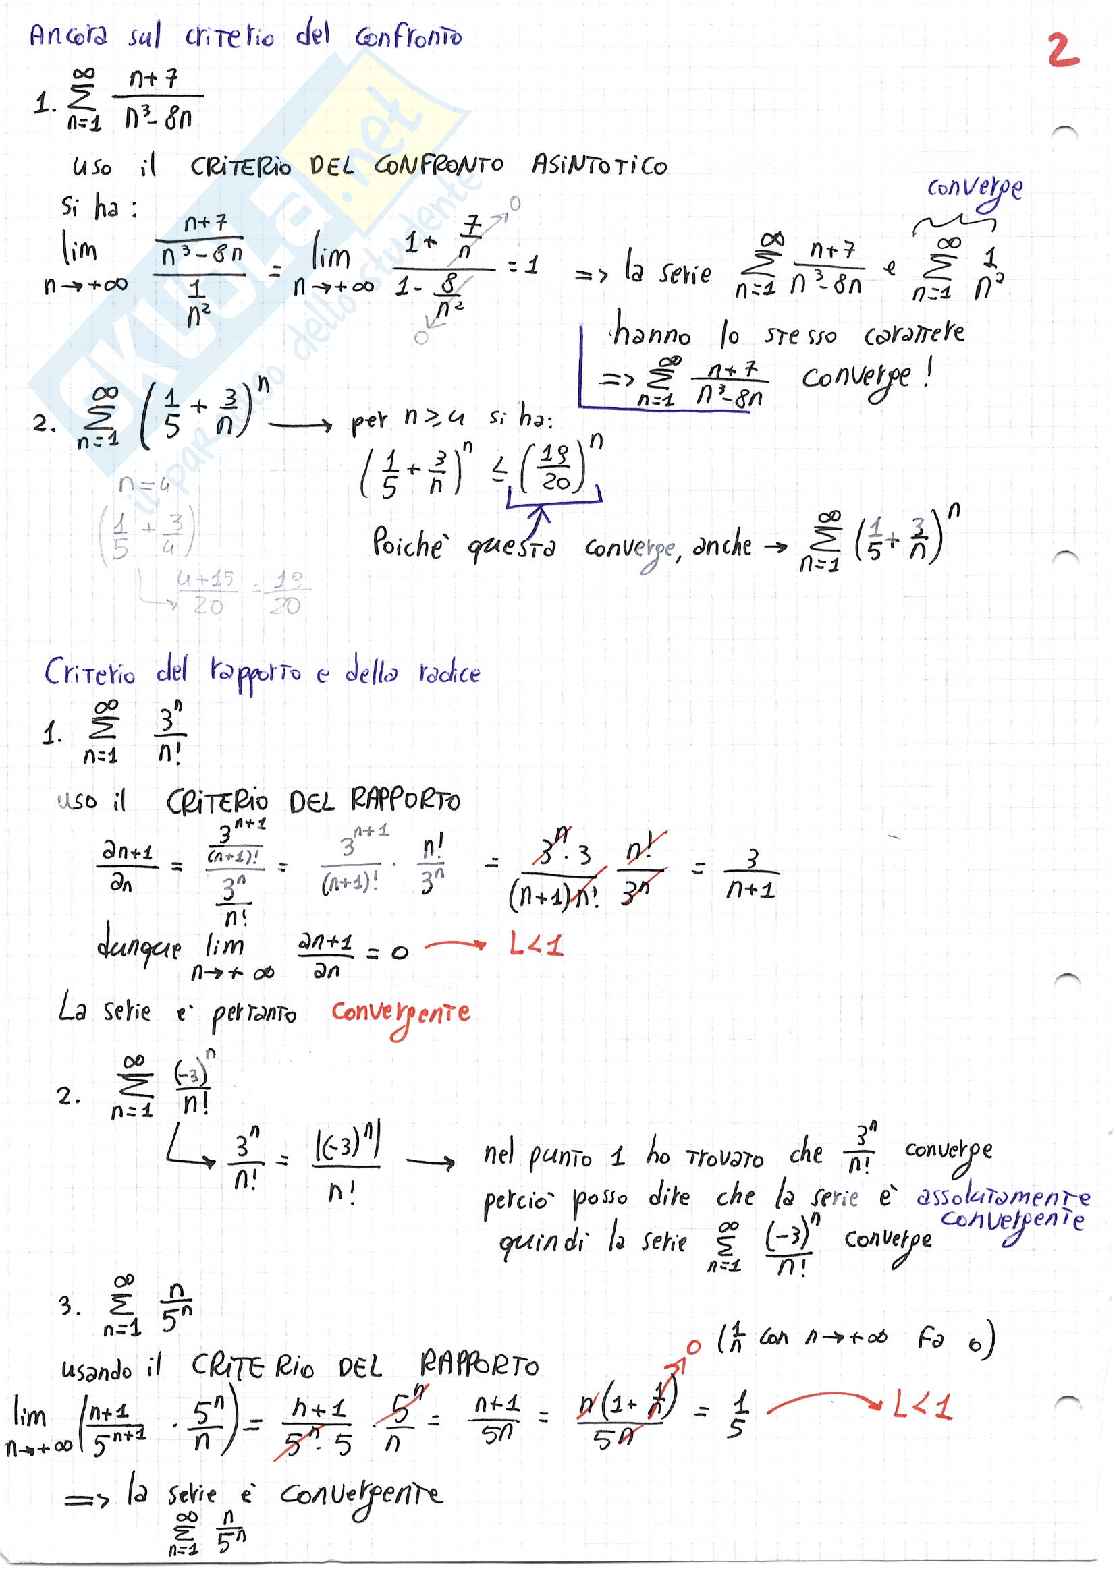 Ancora sul criterio del confronto
2
1. ∑_{n=1}^{∞} (n+7)/(n³-8n)
uso il CRITERIO DEL CONFRONTO ASINTOTICO
converge
Si ha:
lim_{n→+∞} ((n+7)/(n³-8n))/(1/n²) = lim_{n→+∞} (1+7/n)/(1-8/n²) = 1 => la serie ∑_{n=1}^{∞} (n+7)/(n³-8n) e ∑_{n=1}^{∞} 1/n²
0
0
hanno lo stesso carattere
=> ∑_{n=1}^{∞} (n+7)/(n³-8n) converge!
2. ∑_{n=1}^{∞} (1/5 + 3/n)^n → per n≥4 si ha:
(1/5 + 3/n)^n ≤ (19/20)^n
n=4
(1/5 + 3/4)
(4+15)/20 = 19/20
Poichè questa converge, anche → ∑_{n=1}^{∞} (1/5 + 3/n)^n
Criterio del rapporto e della radice
1. ∑_{n=1}^{∞} 3^n/n!
uso il CRITERIO DEL RAPPORTO
an+1/an = (3^{n+1}/(n+1)!)/(3^n/n!) = 3^{n+1}/(n+1)! · n!/3^n = (3^n·3)/((n+1)n!) n!/3^n = 3/(n+1)
dunque lim_{n→+∞} an+1/an = 0 → L<1
La serie è pertanto convergente
2. ∑_{n=1}^{∞} (-3)^n/n!
3^n/n! = |(-3)^n|/n! → nel punto 1 ho trovato che 3^n/n! converge
perciò posso dire che la serie è assolutamente
convergente
quindi la serie ∑_{n=1}^{∞} (-3)^n/n! converge
3. ∑_{n=1}^{∞} n/5^n
0 (1/n con n→+∞ fa 0)
usando il CRITERIO DEL RAPPORTO
lim_{n→+∞} ((n+1)/5^{n+1} · 5^n/n) = (n+1)/(5^n·5) · 5^n/n = (n+1)/5n = n(1+1/n)/5n = 1/5 → L<1
=> la serie è convergente
∑_{n=1}^{∞} n/5^n